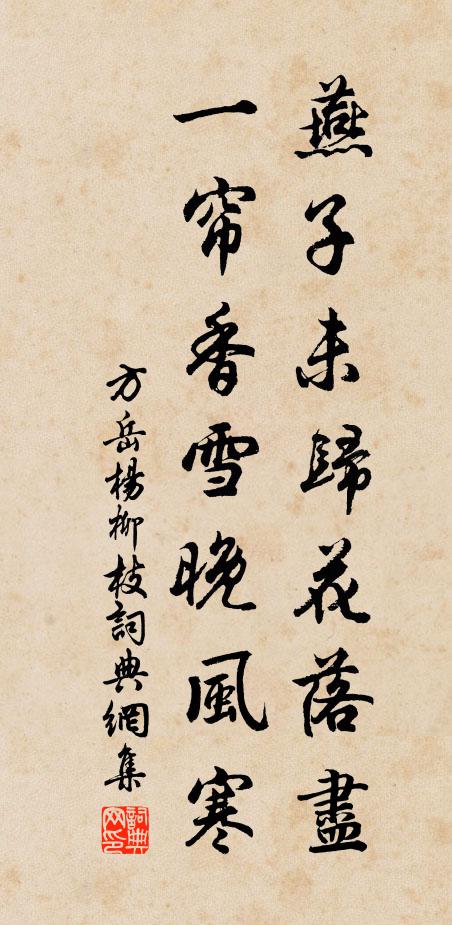 燕子未歸花落盡
一帘香雪晚風寒
方岳楊柳枝詞典網集
詞典网印